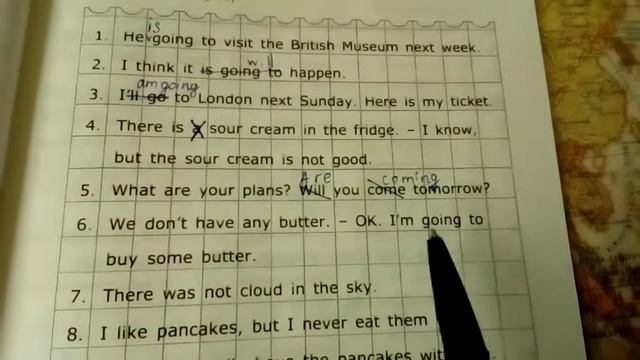 is
1. He going to visit the British Museum next week.
will
2. I think it is going to happen.
am going
3. I'll go to London next Sunday. Here is my ticket.
4. There is a sour cream in the fridge. – I know,
but the sour cream is not good.
Are coming
5. What are your plans? Will you come tomorrow?
6. We don't have any butter. – OK. I'm going to
buy some butter.
7. There was not cloud in the sky.
8. I like pancakes, but I never eat them
the pancakes